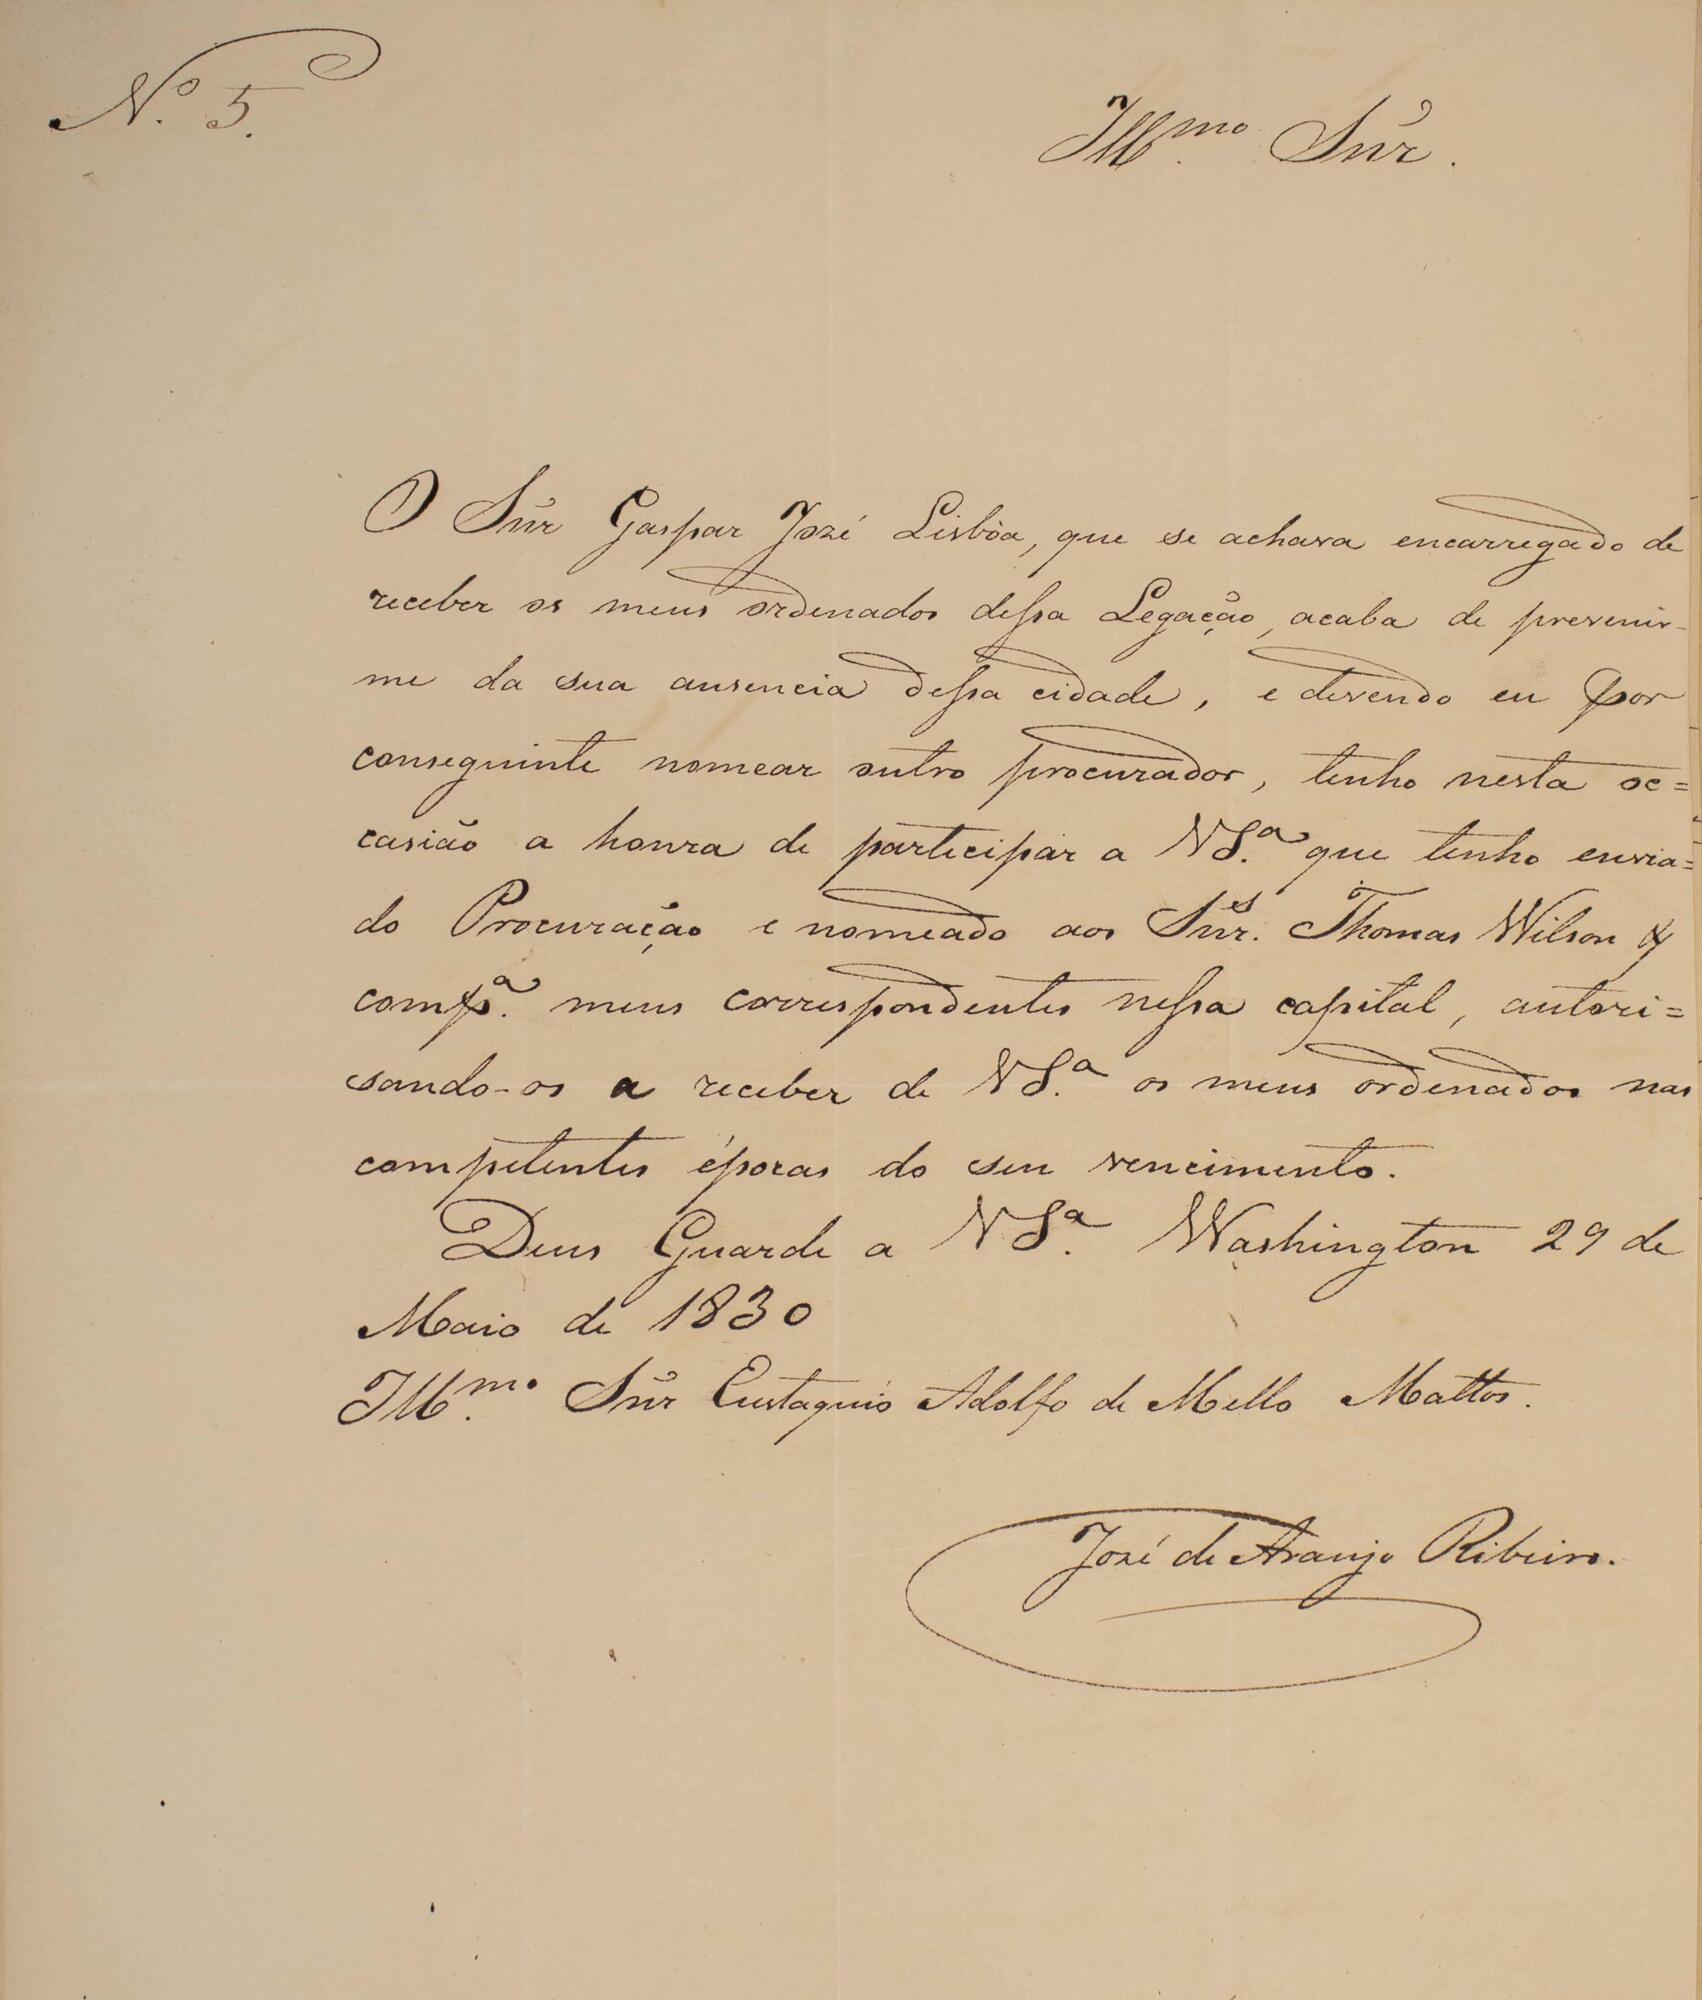 Nº 5.
Illmo. Sñr.
O Sñr Gaspar José Lisbôa, que se achava encarregado de
receber os meus ordenados dessa Legação, acaba de prevenir-
me da sua ausencia dessa cidade, e devendo eu por
conseguinte nomear outro procurador, tenho nesta oc=
casião a honra de participar a VS.ª que tenho envia=
do Procuração e nomeado aos Sñres. Thomas Wilson &
compª. meus correspondentes nessa capital, autori=
sando-os a receber de VS.ª os meus ordenados nas
competentes épocas do seu vencimento.
Deus Guarde a VS.ª Washington 29 de
Maio de 1830
Illmo. Sñr Eustaquio Adolfo de Mello Mattos.
José de Araujo Ribeiro.